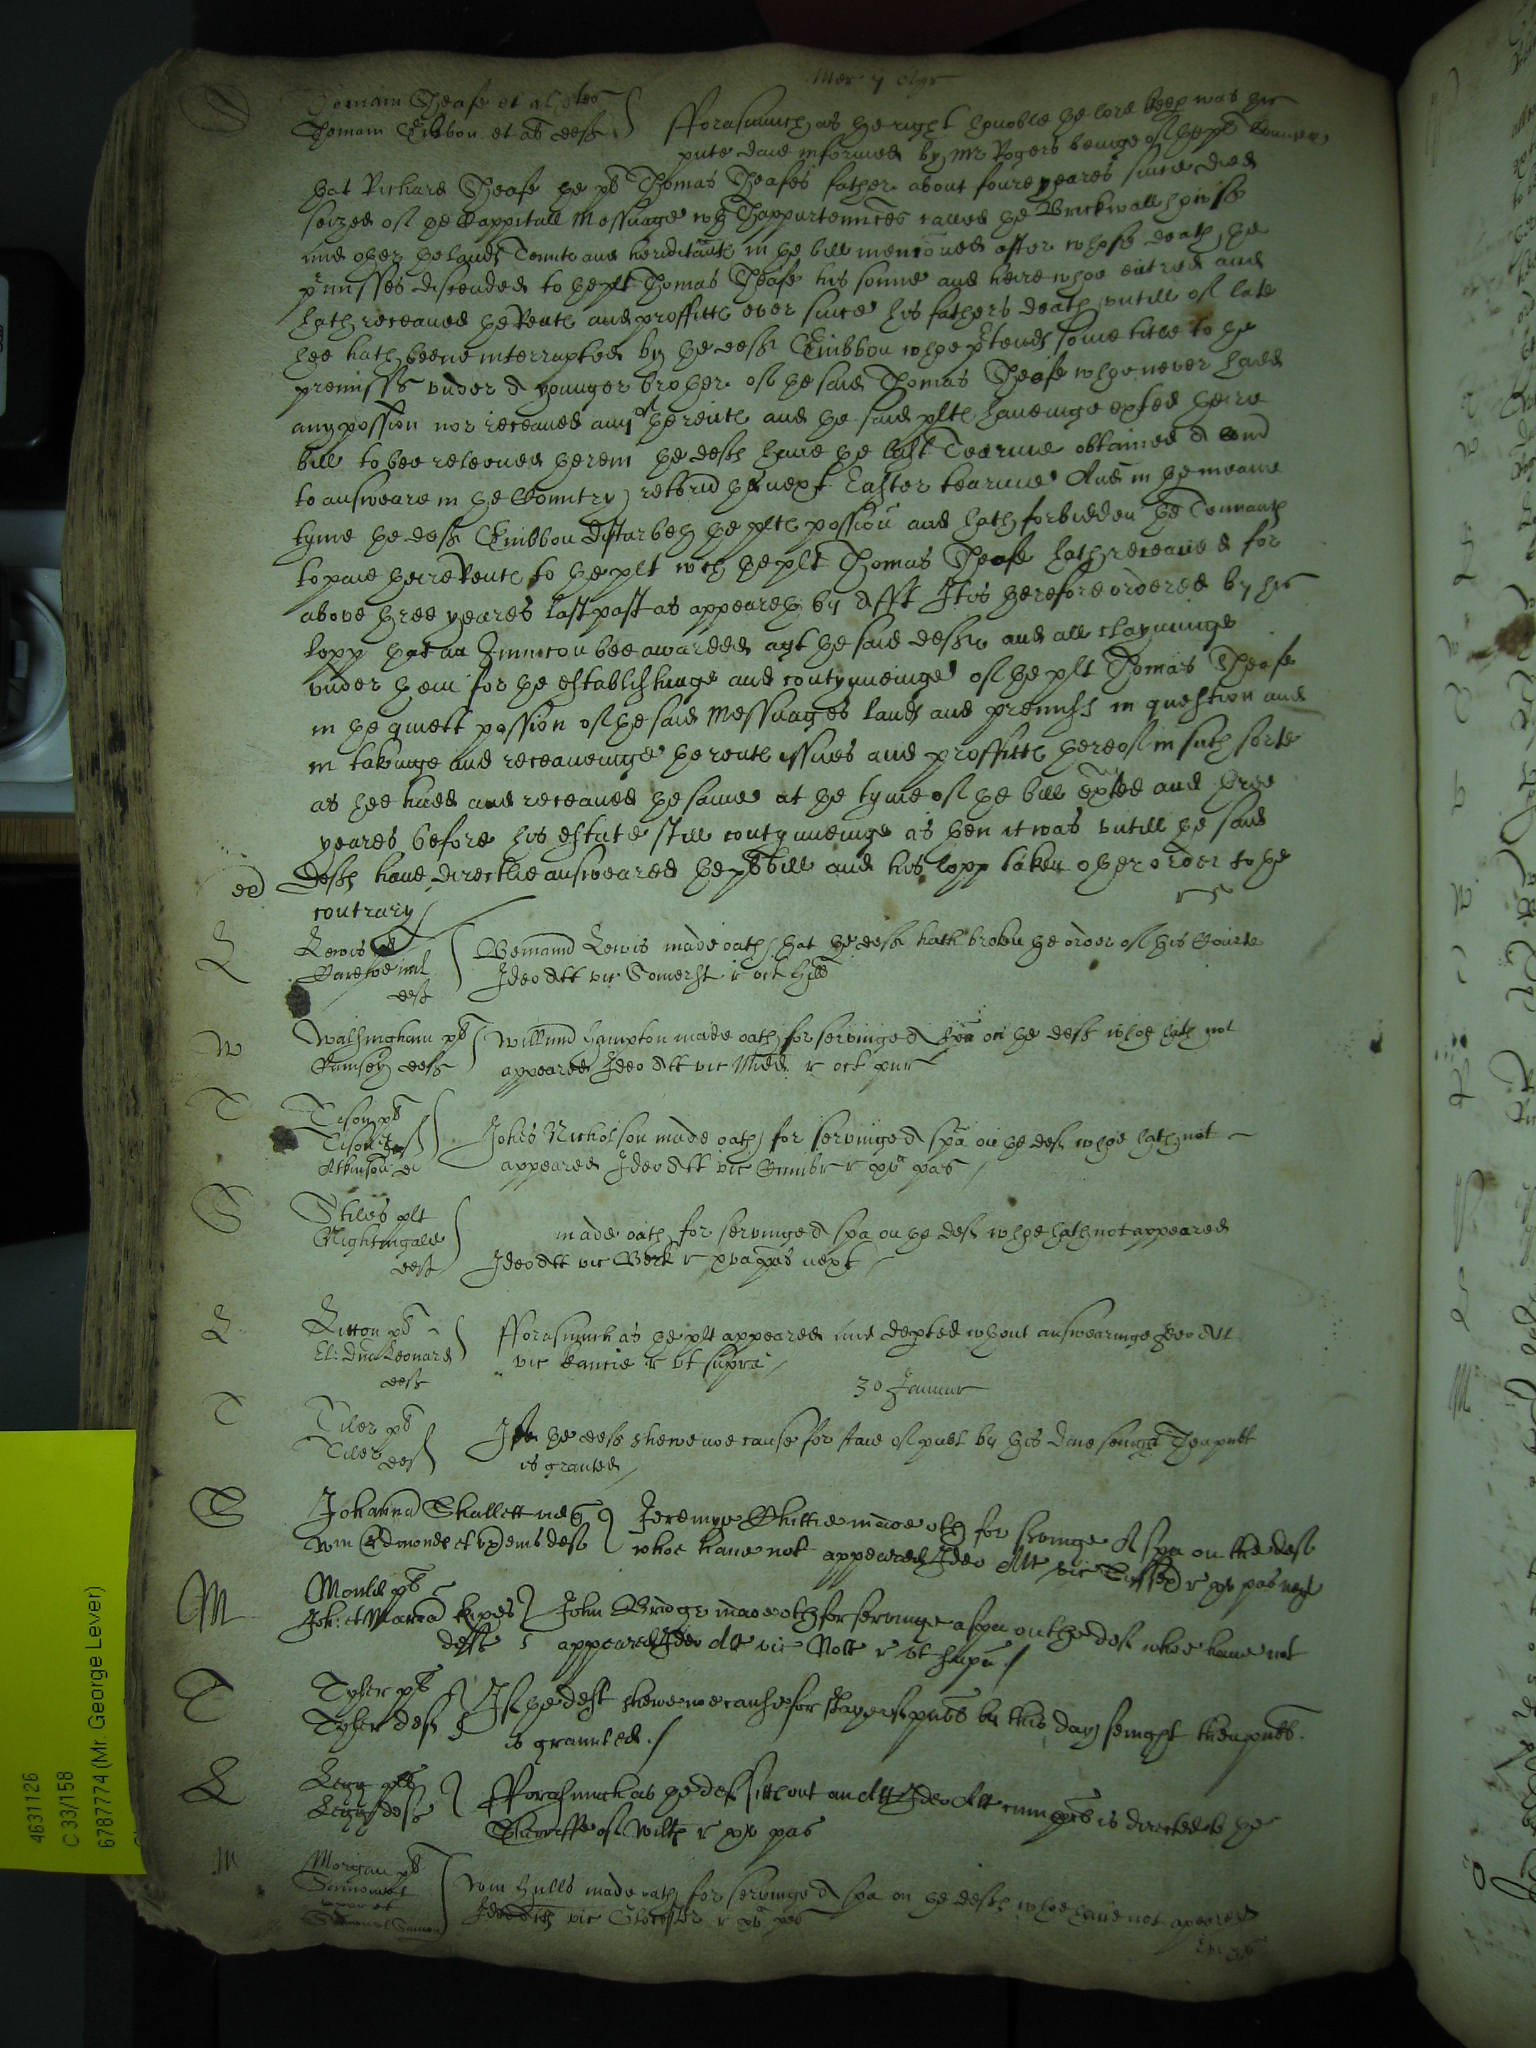 Thomam Sheafe et al quer
Thomam Gibbon et al deff
fforasmuch as the right honoble the lord keep was this
pnte daie informed by Mr Rogers beinge of the plt Councell
that Richard Sheafe the plt Thomas Sheafes father about foure yeares since died
seized of the Cappitall Messuage wth Thappurtennces called the Brickwall howse
and other the lands Temnts and hereditamts in the bill mencioned after whose death the
pmisses discended to the plt Thomas Sheafe his sonne and heire whoe entred and
hath receaved the Rents and proffitts ever since his fathers death untill of late
hee hath beene interrupted by the deft Gibbon whoe ptends some title to the
premisses under a younger brother of the said Thomas Sheafe whoe never hadd
any possion nor receaved any of the rents and the said plts haveinge exhted theire
bill to bee releeved therein the defts have the last Tearme obtained a comd
to answeare in the Countrey retorid the next Easter tearme And in the meane
tyme the deft Gibbon disturbeth the plts possion and hath forbidden the Tennants
to paie theire Rents to the plt wch the plt Thomas Sheafe hath receaved for
above three yeares last past as appeareth by afft It is therefore ordered by his
lopp that an Iniunccon bee awarded agt the said defts and all clayminge
under them for the establishinge and contynueinge of the plt Thomas Sheafe
in the quiett possion of the said Messuages lands and premiss in question and
in takinge and receaveinge the rents issues and proffitts thereof in such sorte
as hee hadd and receaved the same at the tyme of the bill exhted and three
yeares before his estate still contynueinge as then it was untill the said
defts have directlie answeared the plts bill and his lopp taken other order to the
contrary
L
Lewis
deft
Lewis made oath that the deft hath broken the order of this Courte
Ideo Att vic Somerst r oct Hill
W
Walsingham plt
Rumsey deft
Willimd Hampton made oath for servinge a spa on the deft whoe hath not
appeared Ideo Att vic Midd r oct pur
T
Tison plt
Johes Nicholson made oath for servinge a spa on the deft whoe hath not
appeared Ideo Att vic r xv pas
S
Stiles plt
Nightingale
deft
made oath for servinge a spa on the deft whoe hath not appeared
Ideo Att vic Berk r xva pas next
L
Litton plt
El: Dna Leonard
deft
fforasmuch as the plt appeared and depted wthout answearinge Ideo Att
vic Cancie r ut supra
30 Januar
T
Tiler plt
Tiler deft
If the deft shewe noe cause for staie of publ by this daie senigt Then publ
is granted
S
Johanna Skallett
Wm Edmonds et ux eius deft
Jeremye Skittie made oth for servinge A spa on the deft
whoe have not appeared Ideo Att vic r xv pas next
M
Mould plt
Joh: et Maria Kipes
defts
John Bridge made oth for servinge a spa on the deft whoe have not
appeared Ideo Att vic Nott r ut supa
T
Tyler plt
Tyler deft
If the deft shewe noe cause for stay of publ by this day senight then publ
is graunted
L
Legg plt
Legg deft
fforasmuch as the deft sitts out an Att Ideo Att cum procl is directed to the
Sherriffe of Wilts r xv pas
M
Morgan plt
Wm Hills made oath for servinge a spa on the defts whoe have not apeared
Ideo Att vic Glocestr r xv pas
4631126
C 33/158
6787774 (Mr. George Lever)